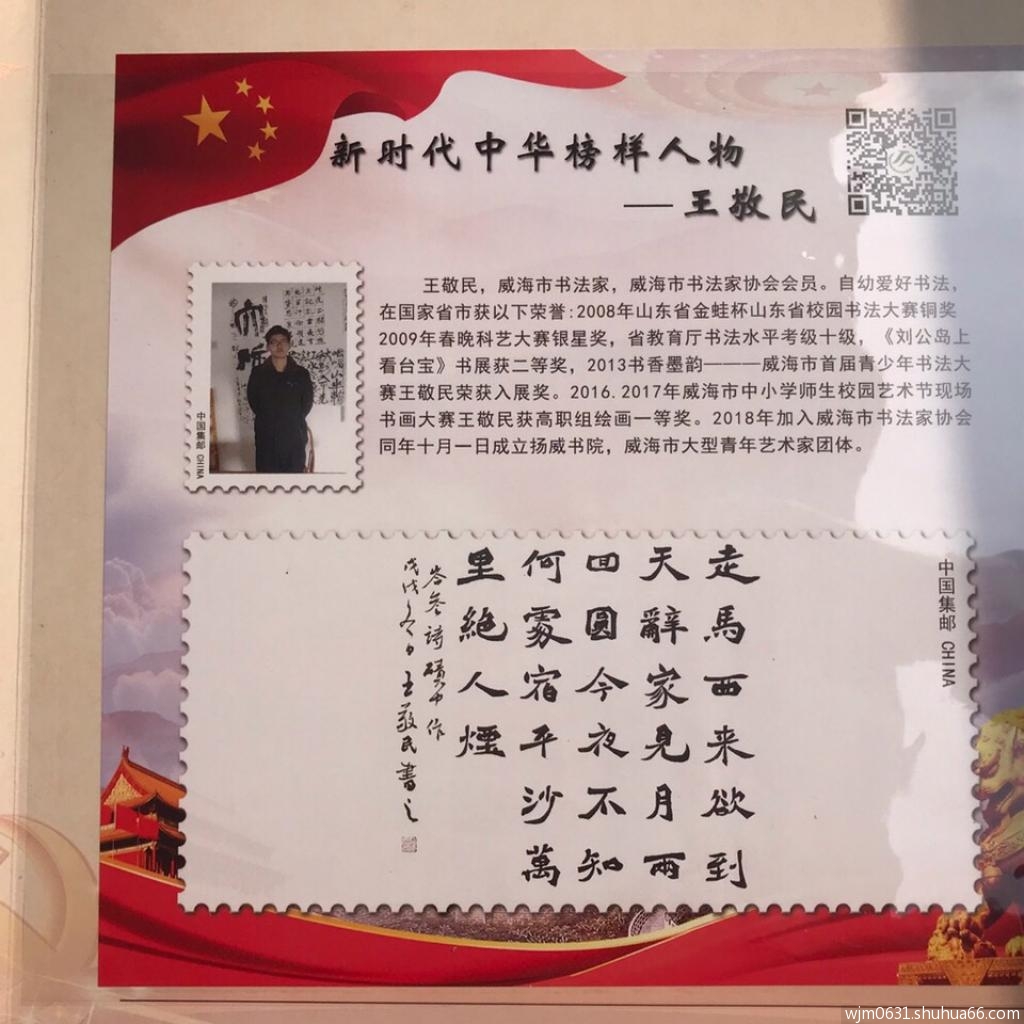 新时代中华榜样人物
——王敬民
王敬民，威海市书法家，威海市书法家协会会员。自幼爱好书法，
在国家省市获以下荣誉:2008年山东省金蛙杯山东省校园书法大赛铜奖
2009年春晚科艺大赛银星奖，省教育厅书法水平考级十级，《刘公岛上
看台宝》书展获二等奖，2013书香墨韵———威海市首届青少年书法大
赛王敬民荣获入展奖。2016.2017年威海市中小学师生校园艺术节现场
书画大赛王敬民获高职组绘画一等奖。2018年加入威海市书法家协会
同年十月一日成立扬威书院，威海市大型青年艺术家团体。
中国集邮 CHINA
中国集邮 CHINA
走馬西来欲到
天辭家見月兩
回圓今夜不知
何處宿平沙萬
里絕人煙
岑参詩磧中作
戊戌年冬月王敬民書之
wjm0631.shuhua66.com